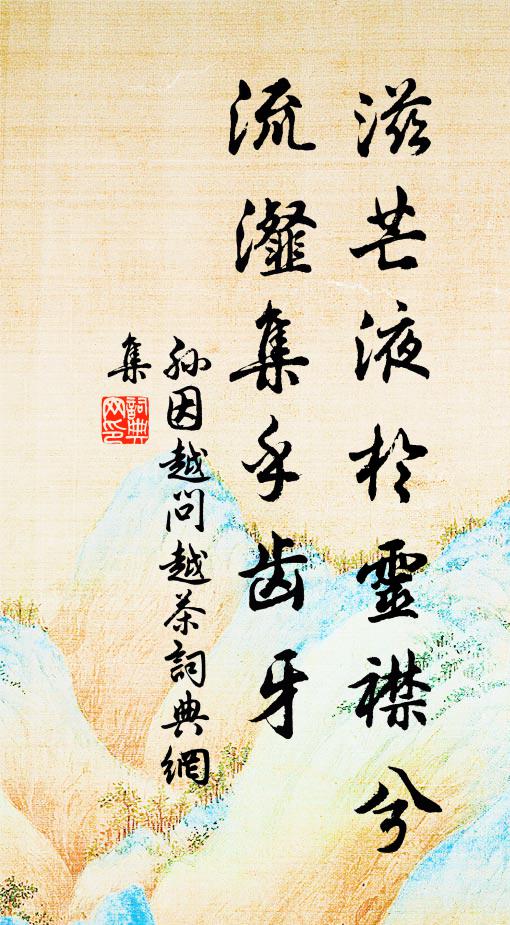 滋芒液於靈襟兮
流瀣集乎齿牙
孙因越問越茶詞典網
集
詞典
网印